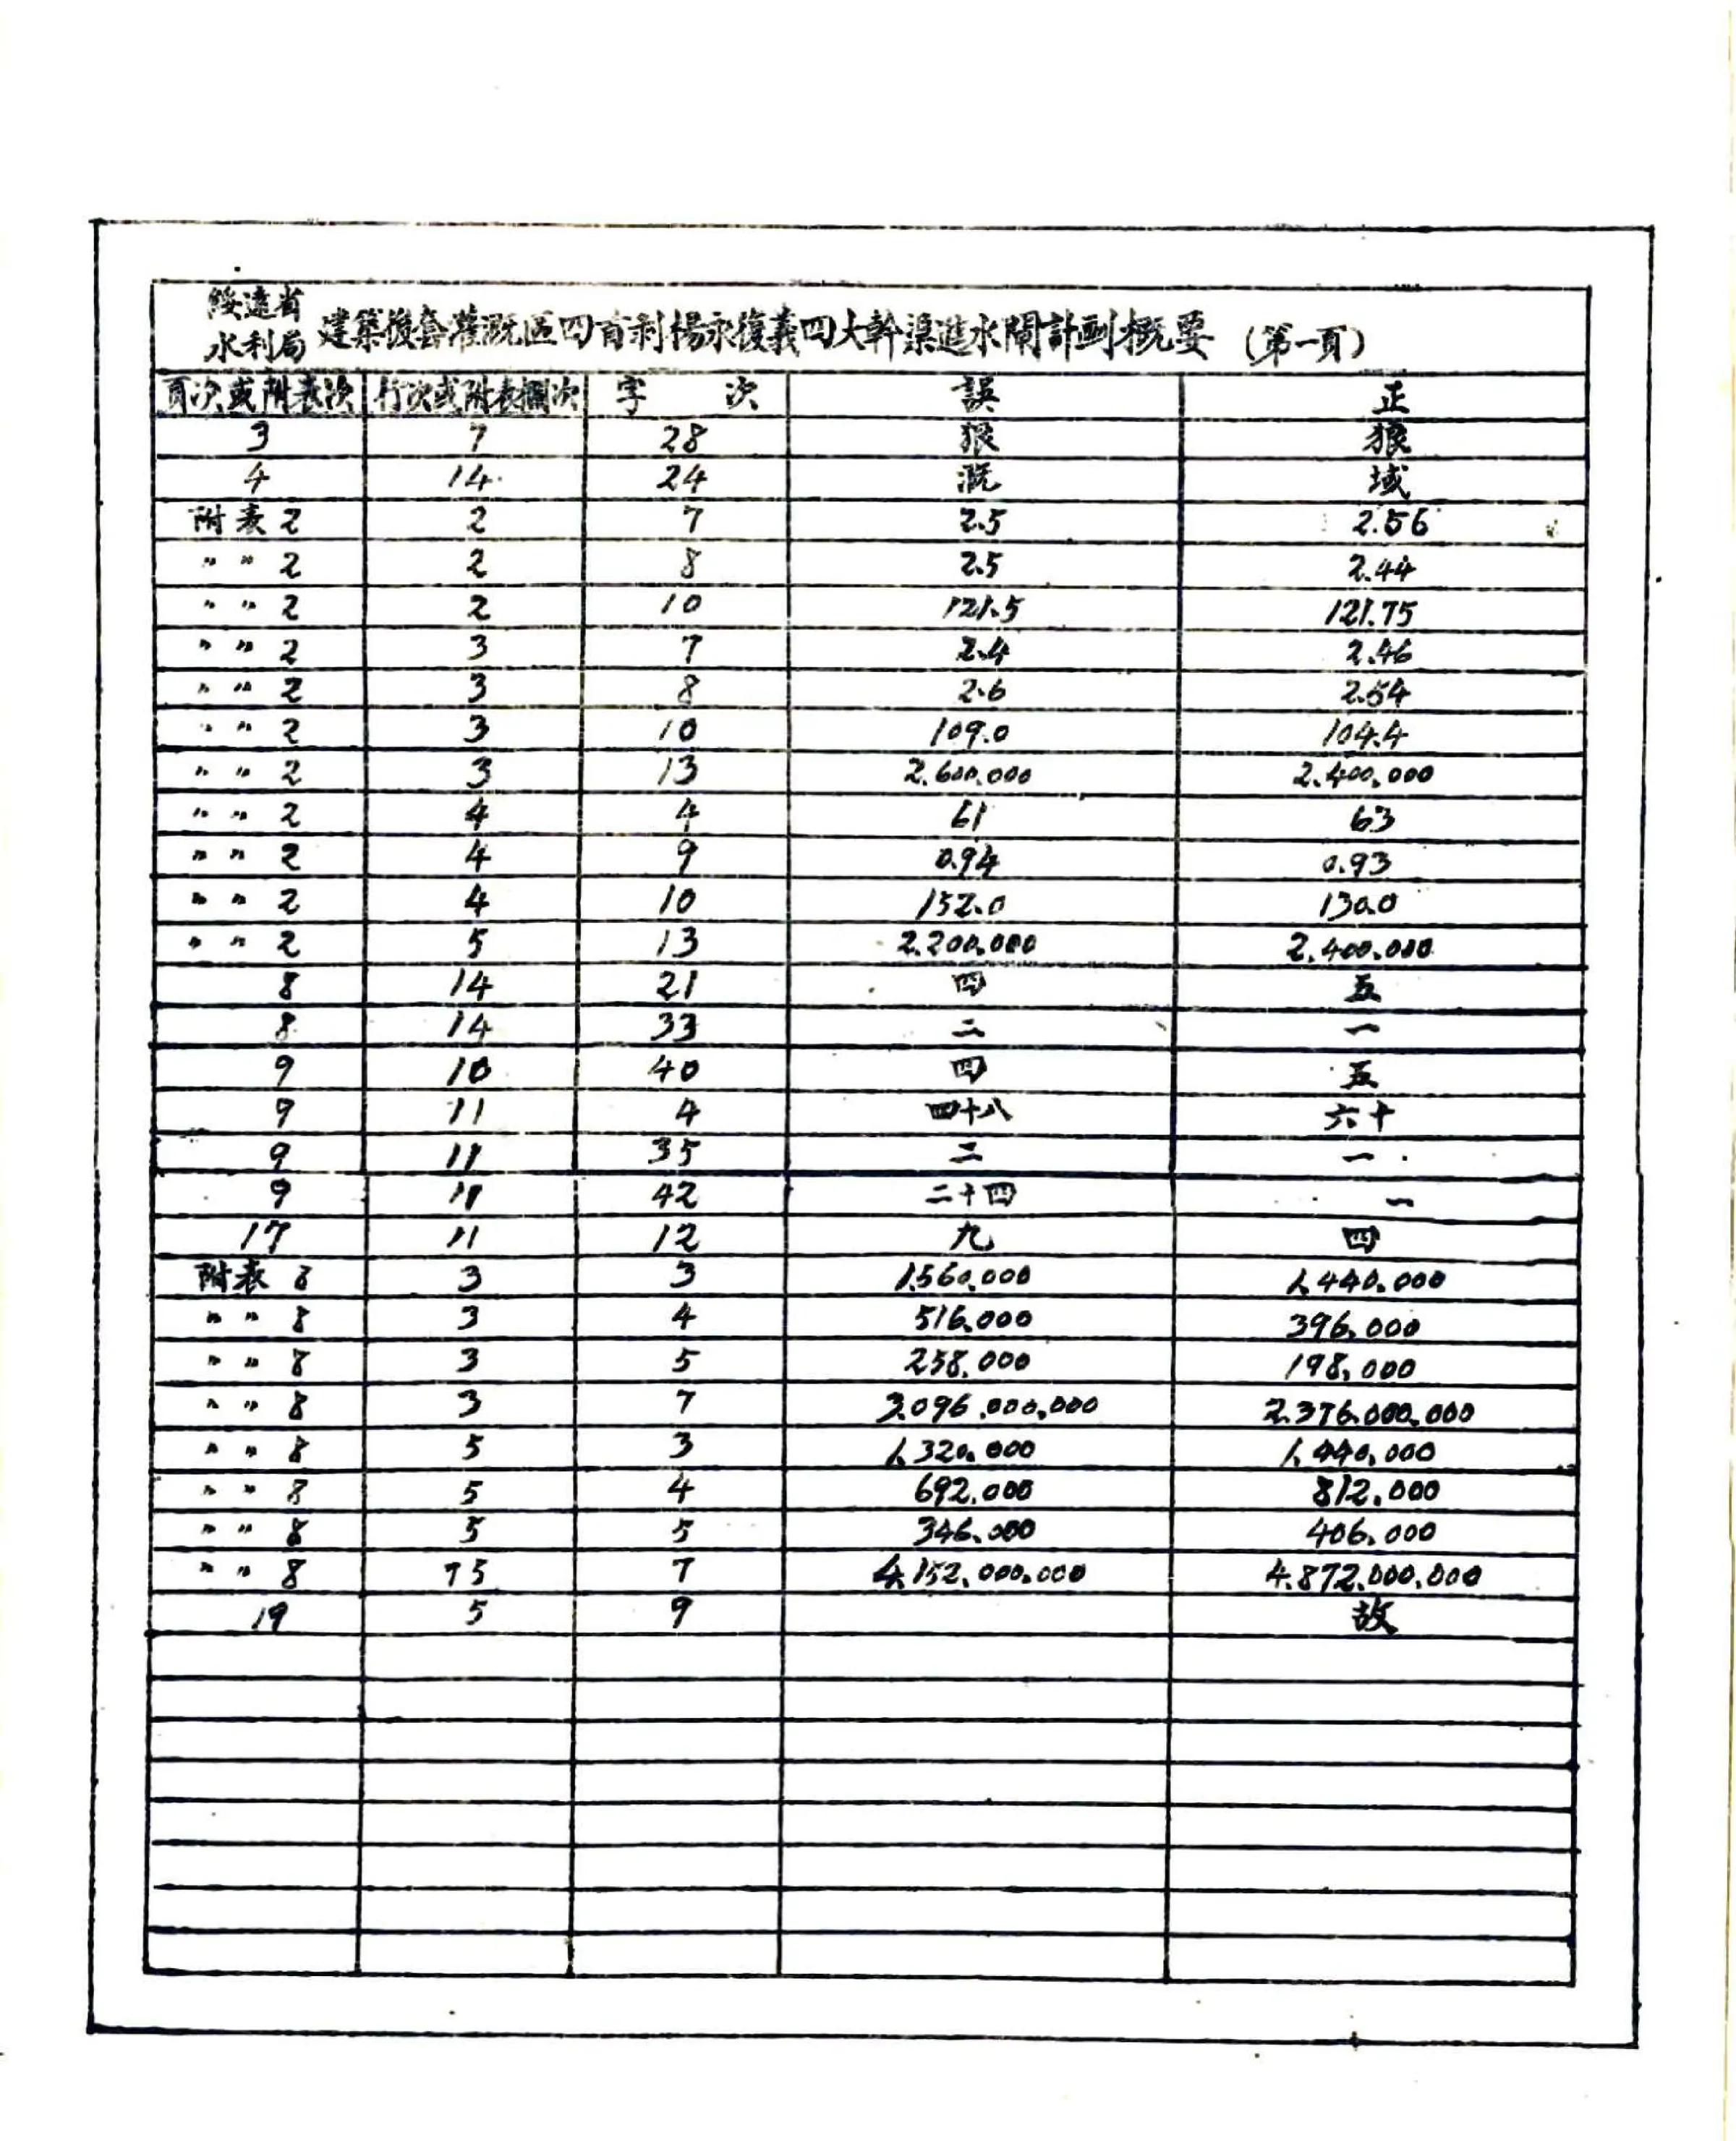 綏遠省
水利局 建築後套灌溉區四首剥楊永復義四大幹渠進水閘計劃概要 (第一頁)
頁次或附表次 行次或附表欄次 字次 誤 正
3 7 28 狠 狼
4 14 24 溉 域
附表2 2 7 2.5 2.56
〃〃2 2 8 2.5 2.44
〃〃2 2 10 121.5 121.75
〃〃2 3 7 2.4 2.46
〃〃2 3 8 2.6 2.54
〃〃2 3 10 109.0 104.4
〃〃2 3 13 2.600.000 2.400.000
〃〃2 4 4 61 63
〃〃2 4 9 0.94 0.93
〃〃2 4 10 152.0 130.0
〃〃2 5 13 2.200.000 2.400.000
8 14 21 四 五
8 14 33 二 一
9 10 40 四 五
9 11 4 四十八 六十
9 11 35 二 一
9 11 42 二十四 一
17 11 12 九 四
附表8 3 3 1.560.000 1.440.000
〃〃8 3 4 516.000 396.000
〃〃8 3 5 258.000 198.000
〃〃8 3 7 3.096.000.000 2.376.000.000
〃〃8 5 3 1.320.000 1.440.000
〃〃8 5 4 692.000 812.000
〃〃8 5 5 346.000 406.000
〃〃8 75 7 4.152.000.000 4.872.000.000
19 5 9 故